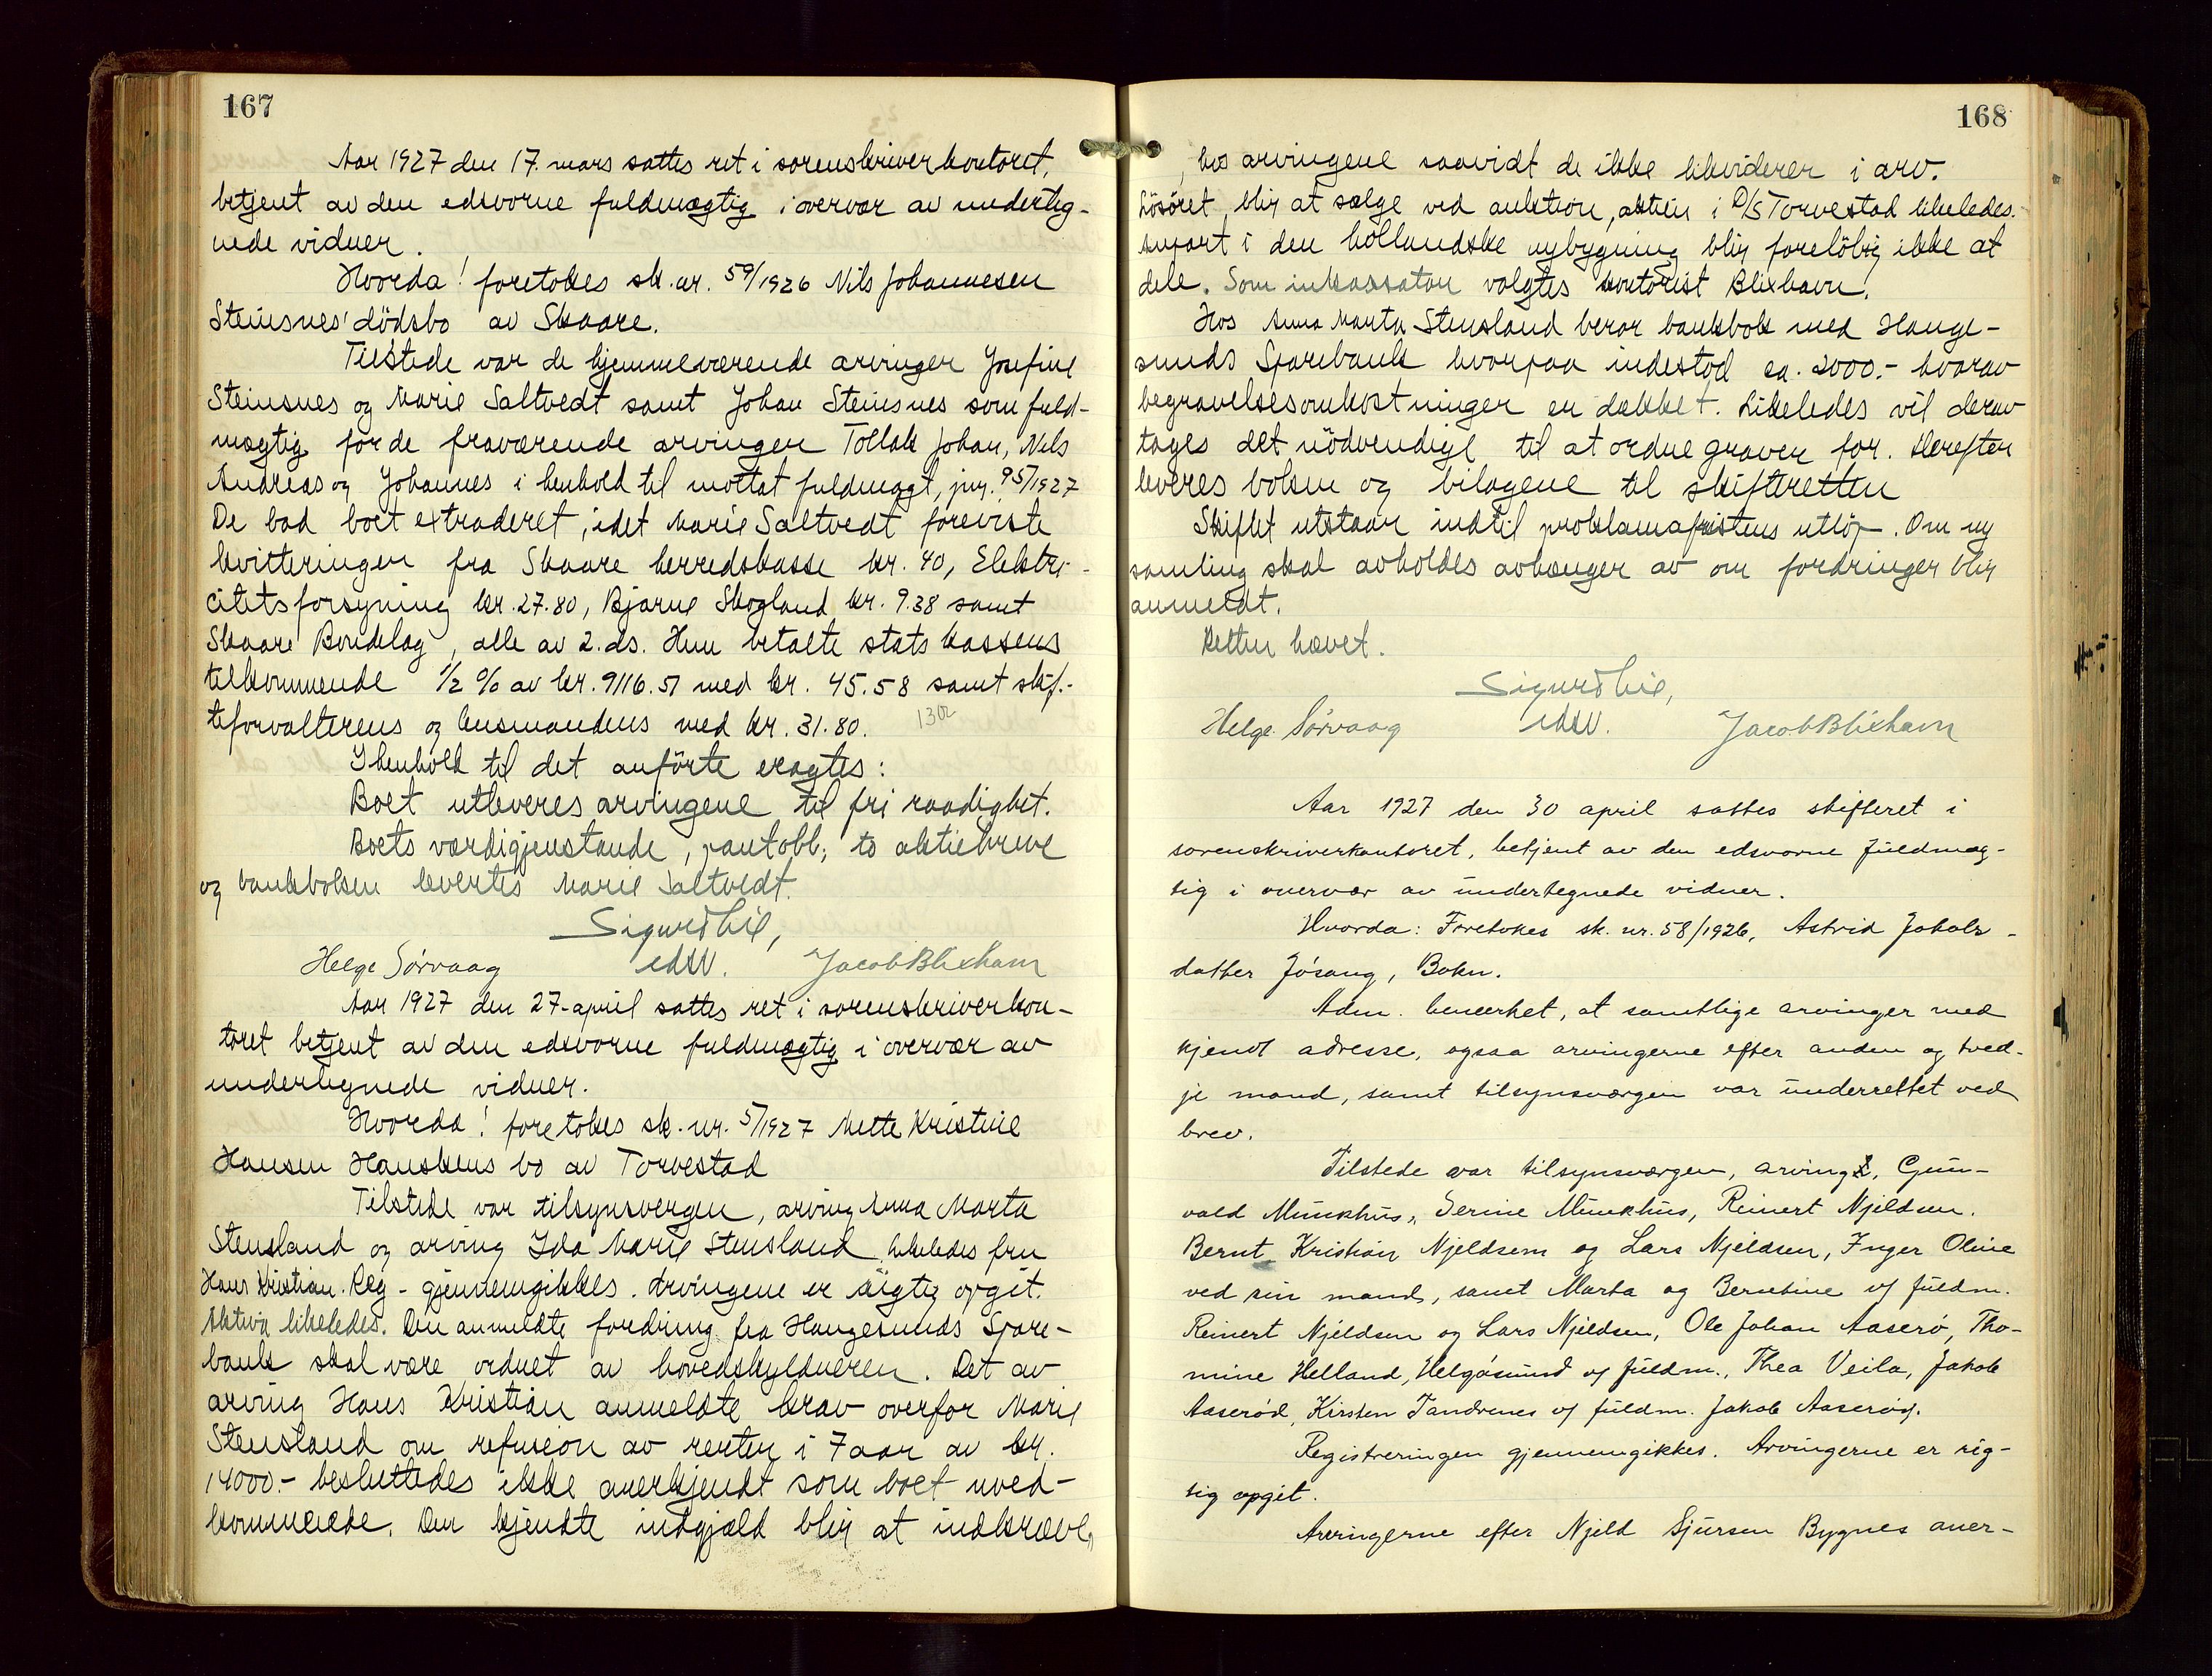 167
Aar 1927 den 17. mars sattes ret i sorenskriverkontoret,
betjent av den edsvorne fuldmægtig i overvær av underteg-
nede vidner.
Hvorda! foretokes sk. nr. 59/1926 Nils Johannesen
Steinsnes' dödsbo av Skaare.
Tilstede var de hjemmelværende arvinger Josefine
Steinsnes og Marie Saltvedt samt Johan Steinsnes som fuld-
mægtig for de fraværende arvinger Tollak Johan, Nils
Andreas og Johannes i henhold til mottat fuldmagt, jnr. 95/1927
De bad boet extraderet, idet Marie Saltvedt foreviste
kvitteringer fra Skaare herredskasse kr. 40, Elektri-
citetsforsyning kr. 27.80, Bjarne Skogland kr. 9.38 samt
Skaare Bondelag, alle av 2. ds. Hun betalte statskassens
tilkommende 1/2 % av kr. 9116.51 med kr. 45.58 samt skif-
teforvalterens og lensmandens med kr. 31.80.
I henhold til det anförte eragtes:
Boet utleveres arvingene til fri raadighet.
Boets værdigjenstande, pantobl., to aktiebreve
og bankboken levertes Marie Saltvedt.
Sigurd Lie,
Helge Sørvaag edsv. Jacob Blixhavn
Aar 1927 den 27. april sattes ret i sorenskriverkon-
toret betjent av den edsvorne fuldmægtig i overvær av
undertegnede vidner.
Hvorda! foretokes sk. nr. 5/1927 Mette Kristine
Hansen Hanskens bo av Torvestad
Tilstede var tilsynsvergen, arving Anna Marta
Stensland og arving Ida Marie Stensland likeledes fru
Hans Kristian. Reg- gjennemgikkes. Arvingene er rigtig opgit.
Aktiva likeledes. Den anmeldte fordring fra Haugesunds Spare-
bank skal være ordnet av hovedskyldneren. Det av
arving Hans Kristian anmeldte krav overfor Marie
Stensland om refusion av renter i 7 aar av kr.
14000.- besluttedes ikke anerkjendt som boet uved-
kommende. Den kjendte indgjæld blir at indkræve
168
hos arvingene saavidt de ikke likviderer i arv.
Lösöret blir at sælge ved auktion, aktien i D/S Torvestad likeledes.
Anpart i den hollandske nybygning blir forelöbig ikke at
dele. Som inkassator valgtes kontorist Blixhavn.
Hos Anna Marta Stensland beror bankbok med Hauge-
sunds Sparebank hvorpaa indestod ca. 2000.- hvorav
begravelsesomkostninger er dækket. Likeledes vil derav
tages det nödvendige til at ordne graven for. Herefter
leveres boken og bilagene til skifteretten
Skiftet utstaar indtil proklamafristens utlöp. Om ny
samling skal avholdes avhænger av om fordringer blir
anmeldt.
Retten hævet.
Sigurd Lie,
Helge Sørvaag edsv. Jacob Blixhavn
Aar 1927 den 30 april sattes skifteret i
sorenskriverkontoret, betjent av den edsvorne fuldmæg-
tig i overvær av undertegnede vidner.
Hvorda: Foretokes sk. nr. 58/1926, Astrid Jakobs-
datter Jósang, Bokn.
Adm. bemerket, at samtlige arvinger med
kjendt adresse, ogsaa arvingerne efter anden og tred-
je mand, samt tilsynsværgen var underrettet ved
brev.
Tilstede var tilsynsværgen, arving, Gun-
vald Munkhus, Serine Munkhus, Reinert Njeldsen.
Bernt Kristian Njeldsen og Lars Njeldsen, Inger Oline
ved sin mand, samt Marta og Berntine v/ fuldm.
Reinert Njeldsen og Lars Njeldsen, Ole Johan Aaserö, Tho-
mine Helland, Helgøsund v/ fuldm., Thea Veila, Jakob
Aaseród, Kirsten Tandrenes v/ fuldm. Jakob Aaseród.
Registreringen gjennemgikkes. Arvingerne er rig-
tig opgit.
Arvingerne efter Njeld Sjursen Bygnes aner-